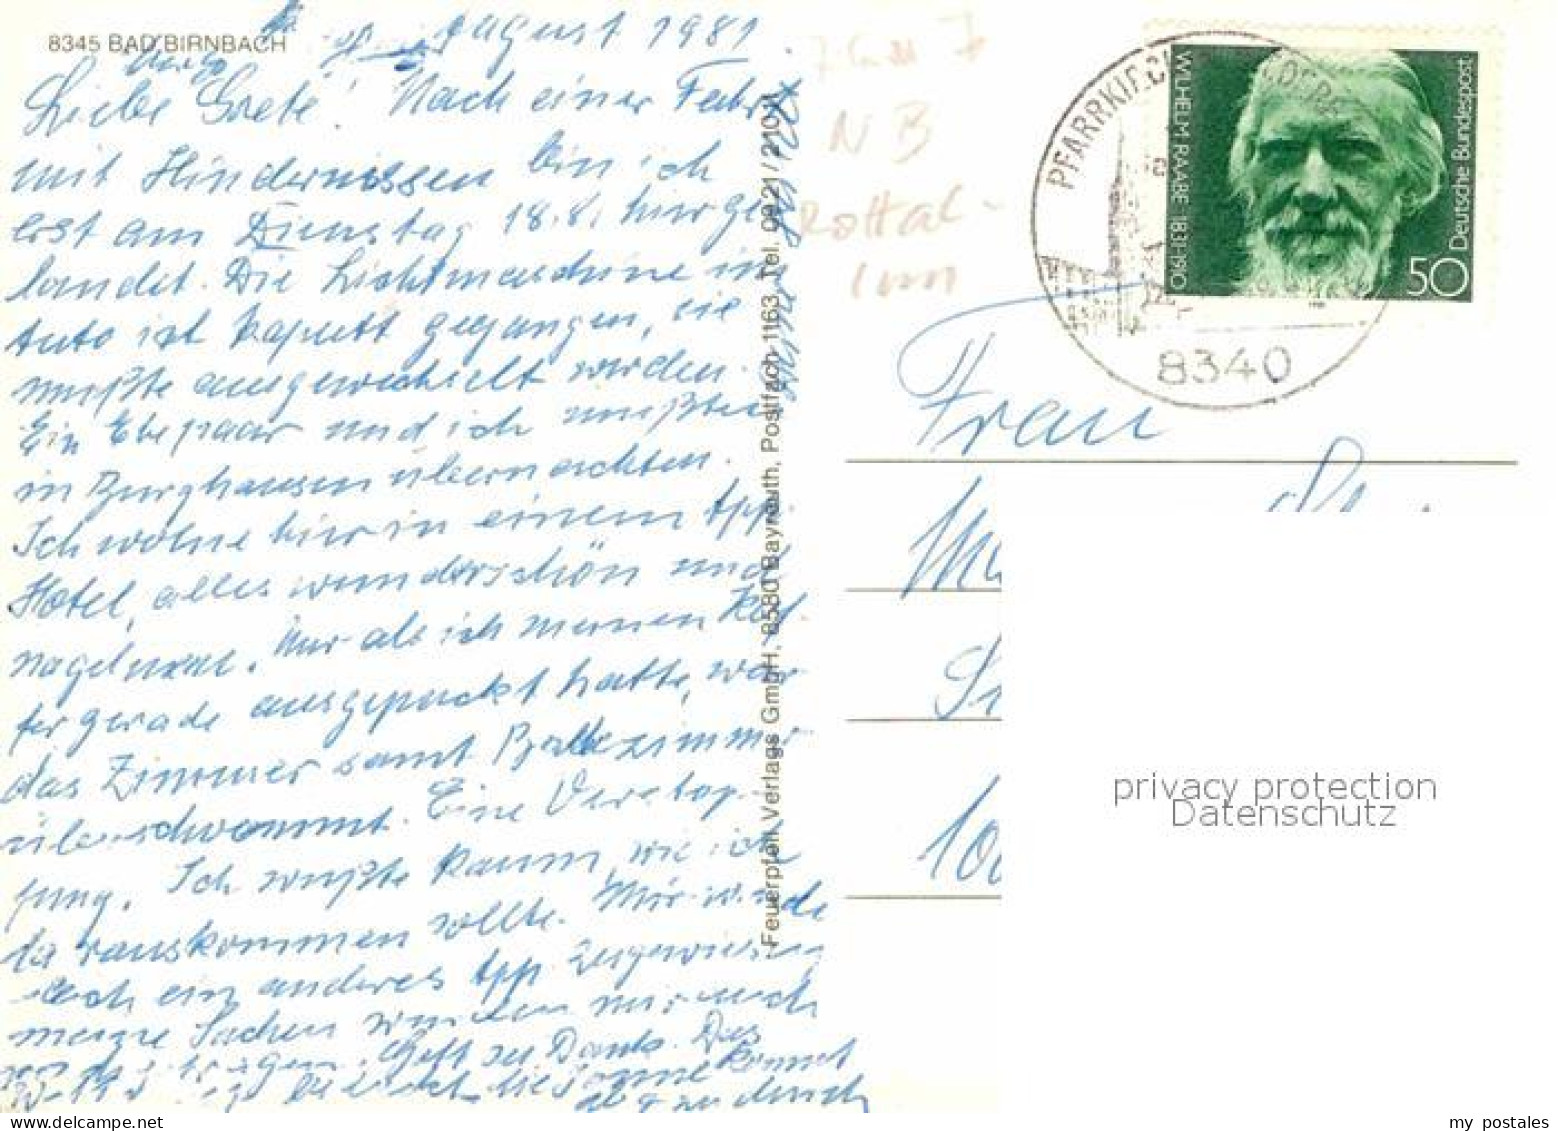 8345 BAD BIRNBACH
August 1981
Liebe Grete! Nach einer Fahrt
mit Hindernissen bin ich
erst am Dienstag 18.8. hier ge
landet. Die Lichtmaschine im
Auto ist kaputt gegangen, sie
mußte ausgewechselt werden.
Ein Ehepaar und ich mußten
in Burghausen übernachten.
Ich wohne hier in einem App.
Hotel, alles wunderschön und
nagelneu. Nur als ich meinen Kof-
fer gerade ausgepackt hatte, war
das Zimmer samt Badezimmer
überschwemmt. Eine Verstop-
fung. Ich wußte kaum, wie ich
da rauskommen sollte. Mir wurde
ein anderes App zugewiesen
meine Sachen wurden mir auch
Gott sei Dank. Das
die Sonne kommt
ab u zu durch
Feuerpfeil Verlags GmbH, 8580 Bayreuth, Postfach 1163, Tel. 09 21 / 2 10
7
NB
Rottal-
Inn
PFARRKIRCH
8340
WILHELM RAABE 1831-1910
Deutsche Bundespost
50
Frau
privacy protection
Datenschutz
my postales